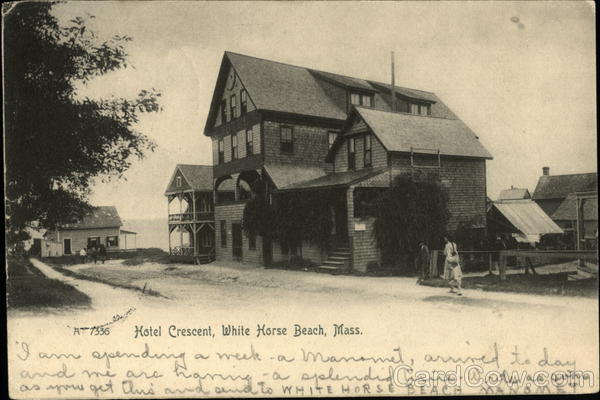 A-7336 Hotel Crescent, White Horse Beach, Mass.
I am spending a week-a Manomet, arrived to day
and we are having-a splendid time
as you get this and send to WHITE HORSE BEACH MANOMET
CardCow.com